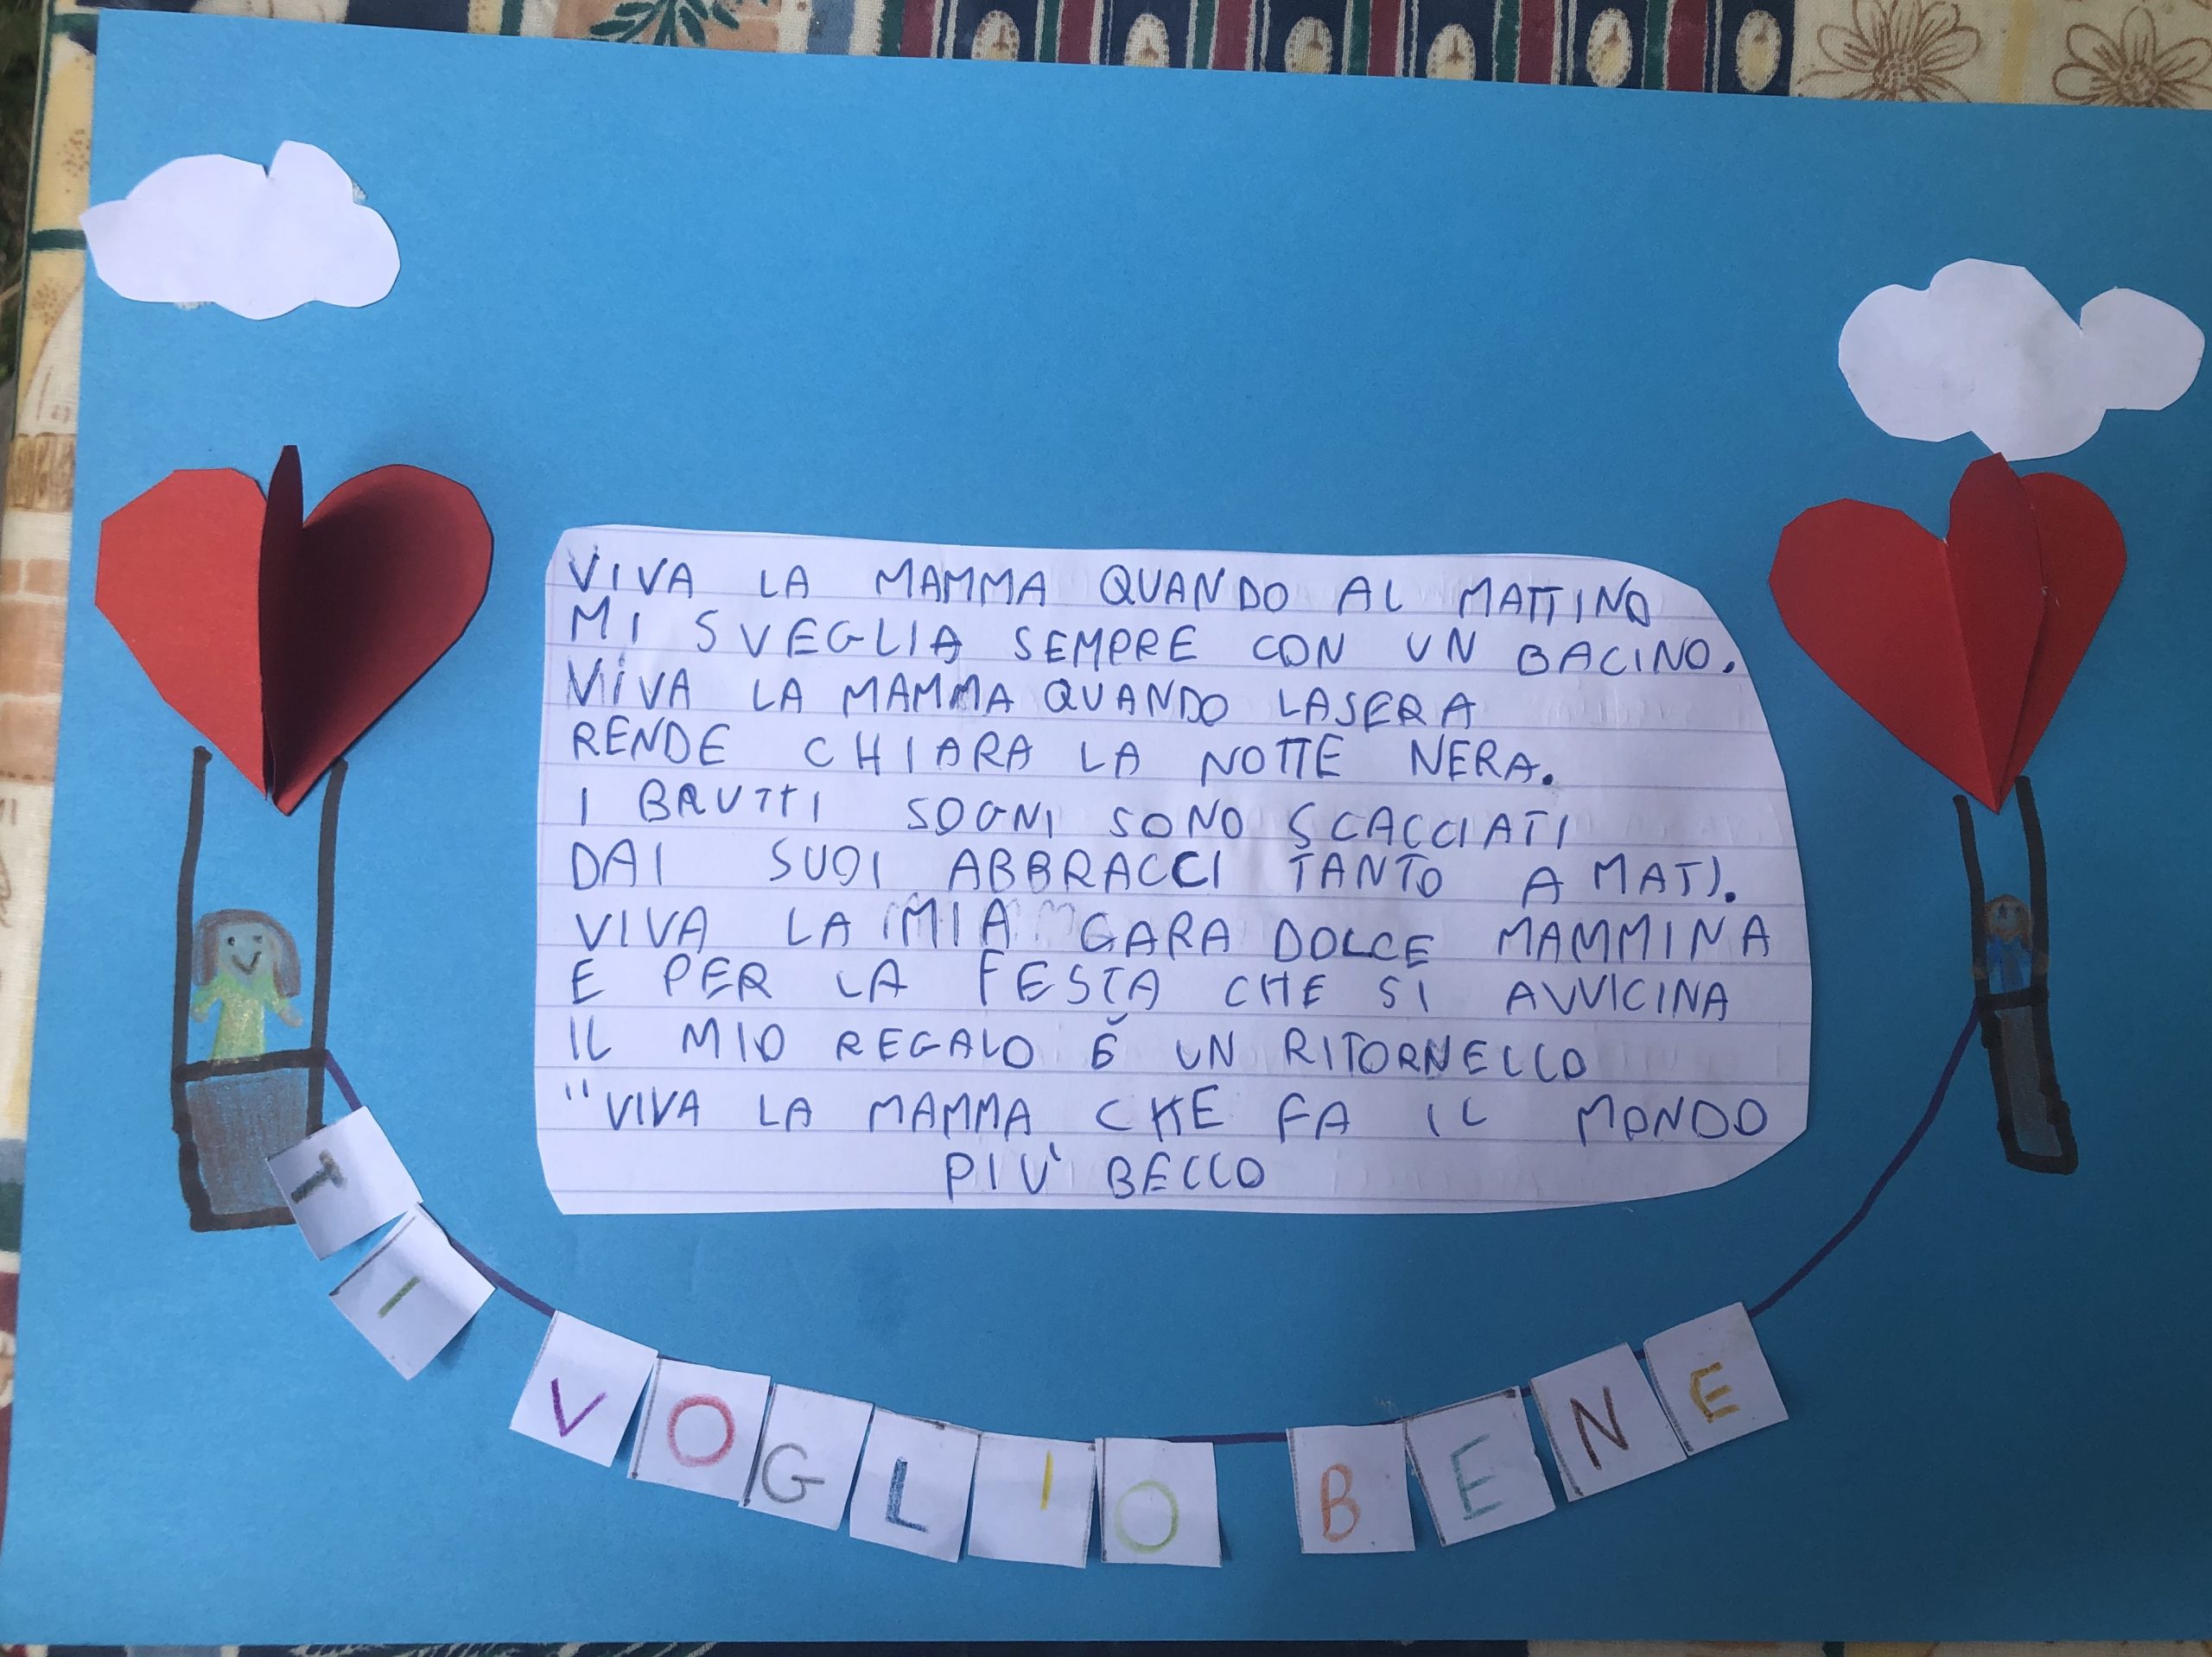 VIVA LA MAMMA QUANDO AL MATTINO
MI SVEGLIA SEMPRE CON UN BACINO.
VIVA LA MAMMA QUANDO LA SERA
RENDE CHIARA LA NOTTE NERA.
I BRUTTI SOGNI SONO SCACCIATI
DAI SUOI ABBRACCI TANTO AMATI.
VIVA LA MIA CARA DOLCE MAMMINA
E PER LA FESTA CHE SI AVVICINA
IL MIO REGALO È UN RITORNELLO
"VIVA LA MAMMA CHE FA IL MONDO
PIU' BELLO
TI VOGLIO BENE